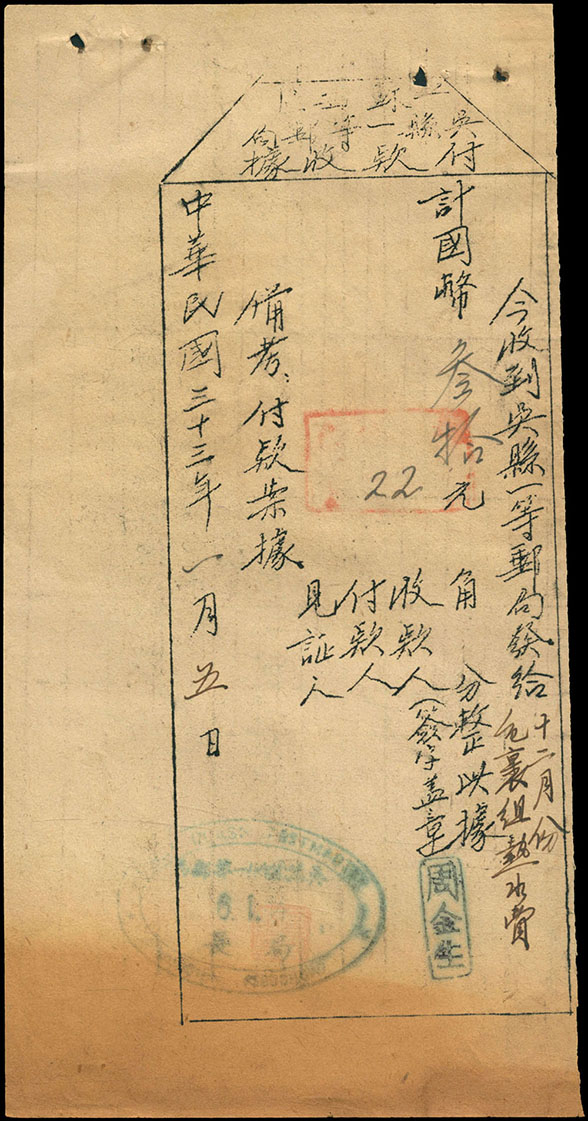 吳縣一等郵局
付款收據
今收到吳縣一等郵局發給十二月份
包裹組熱水費
計國幣叁拾元 角 分整此據
22
收款人(簽字盖章
周金生
付款人
見証人
備考:付款案據
中華民國三十三年一月五日
局長